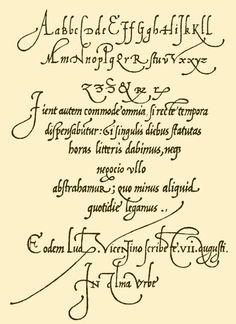 AabbcCdeEffGghHiJkKll
MmNnopPqQrRstuVvxxyz
Fient autem commode omnia, si recte tempora
dispensabūtur: Et singulis diebus statutas
horas litteris dabimus, neqȝ
negocio vllo
abstrahamur; quo minus aliquid
quotidie legamus ..
Eodem Lud. Vicentino scribēte .vii. augusti.
IN Alma Vrbe